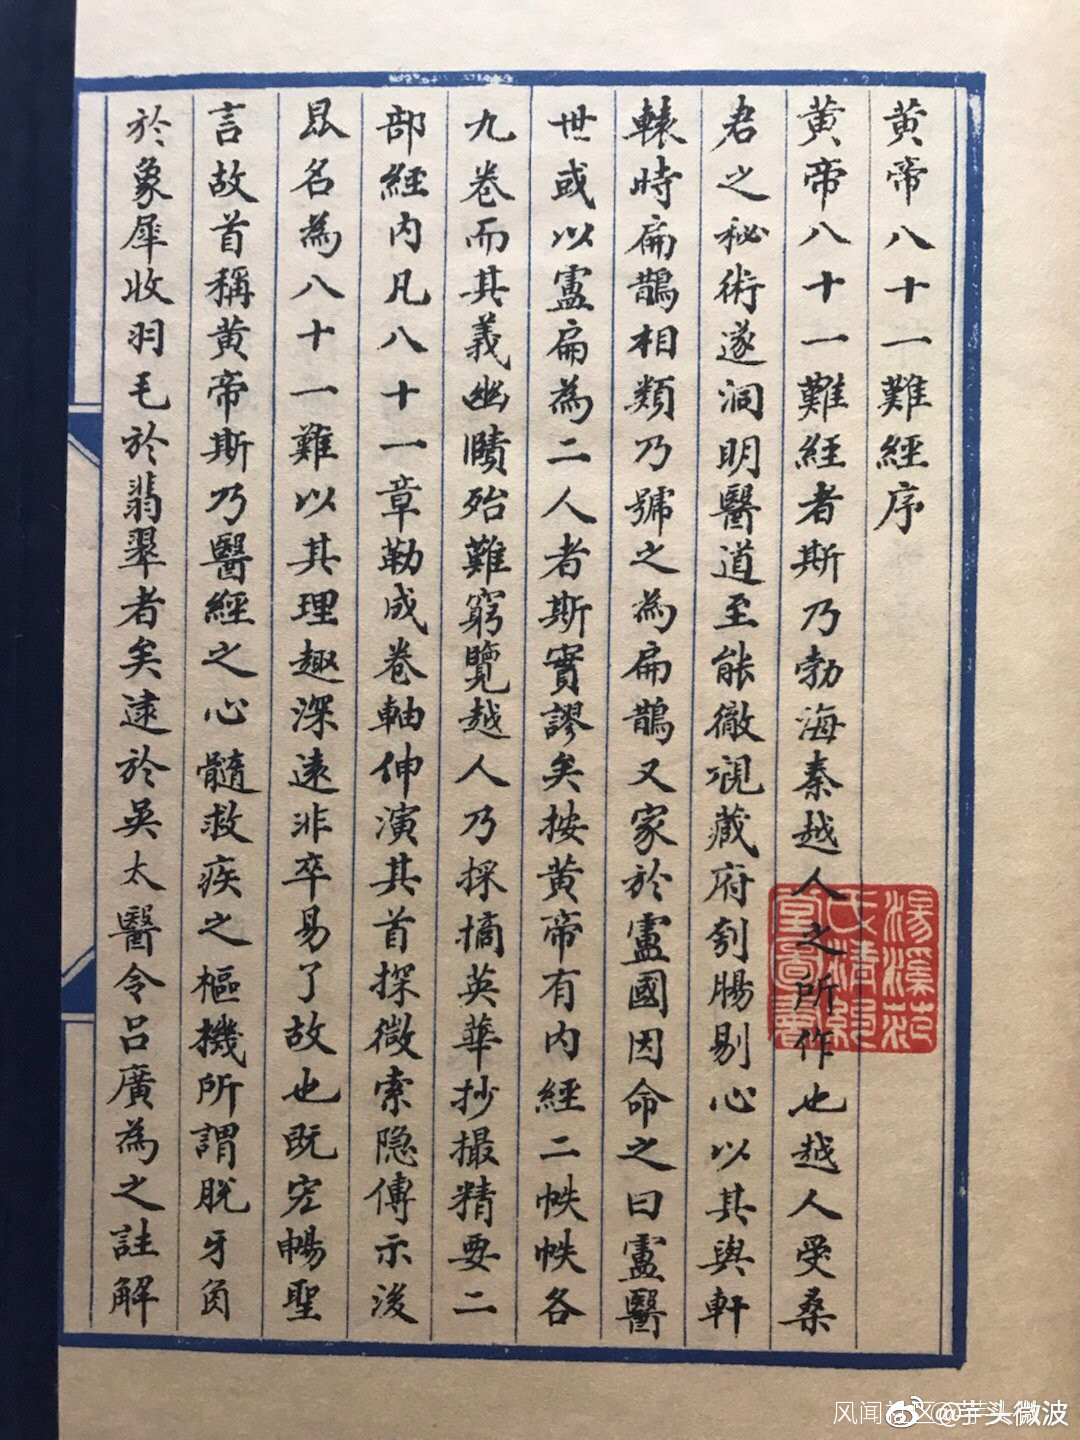 黄帝八十一難經序
黄帝八十一難經者斯乃勃海秦越人之所作也越人受桑
君之秘術遂洞明醫道至能徹視藏府刳腸剔心以其與軒
轅時扁鵲相類乃號之為扁鵲又家於盧國因命之曰盧醫
世或以盧扁為二人者斯實謬矣按黄帝有内經二帙帙各
九卷而其義幽賾殆難窮覽越人乃採摘英華抄撮精要二
部經内凡八十一章勒成卷軸伸演其首探微索隐傳示後
昆名為八十一難以其理趣深遠非卒易了故也既宏暢聖
言故首稱黄帝斯乃醫經之心髓救疾之樞機所謂脱牙角
於象犀收羽毛於翡翠者矣逮於吳太醫令呂廣為之註解
湯溪范
氏
風闻社区
@芋头微波